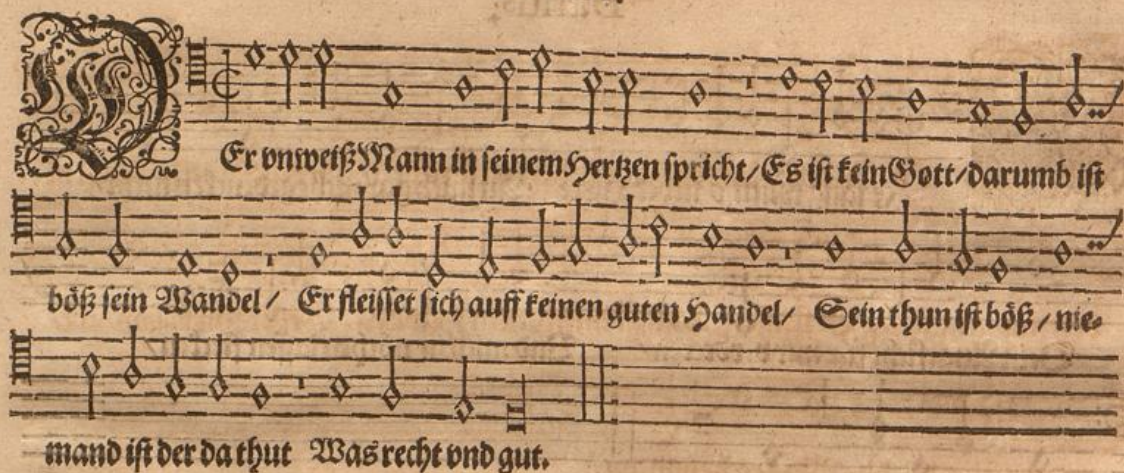 DEr vnweiß Mann in seinem Hertzen spricht/ Es ist kein Gott/ darumb ist
böß sein Wandel/ Er fleisset sich auff keinen guten Handel/ Sein thun ist böß/ nie-
mand ist der da thut Was recht vnd gut.